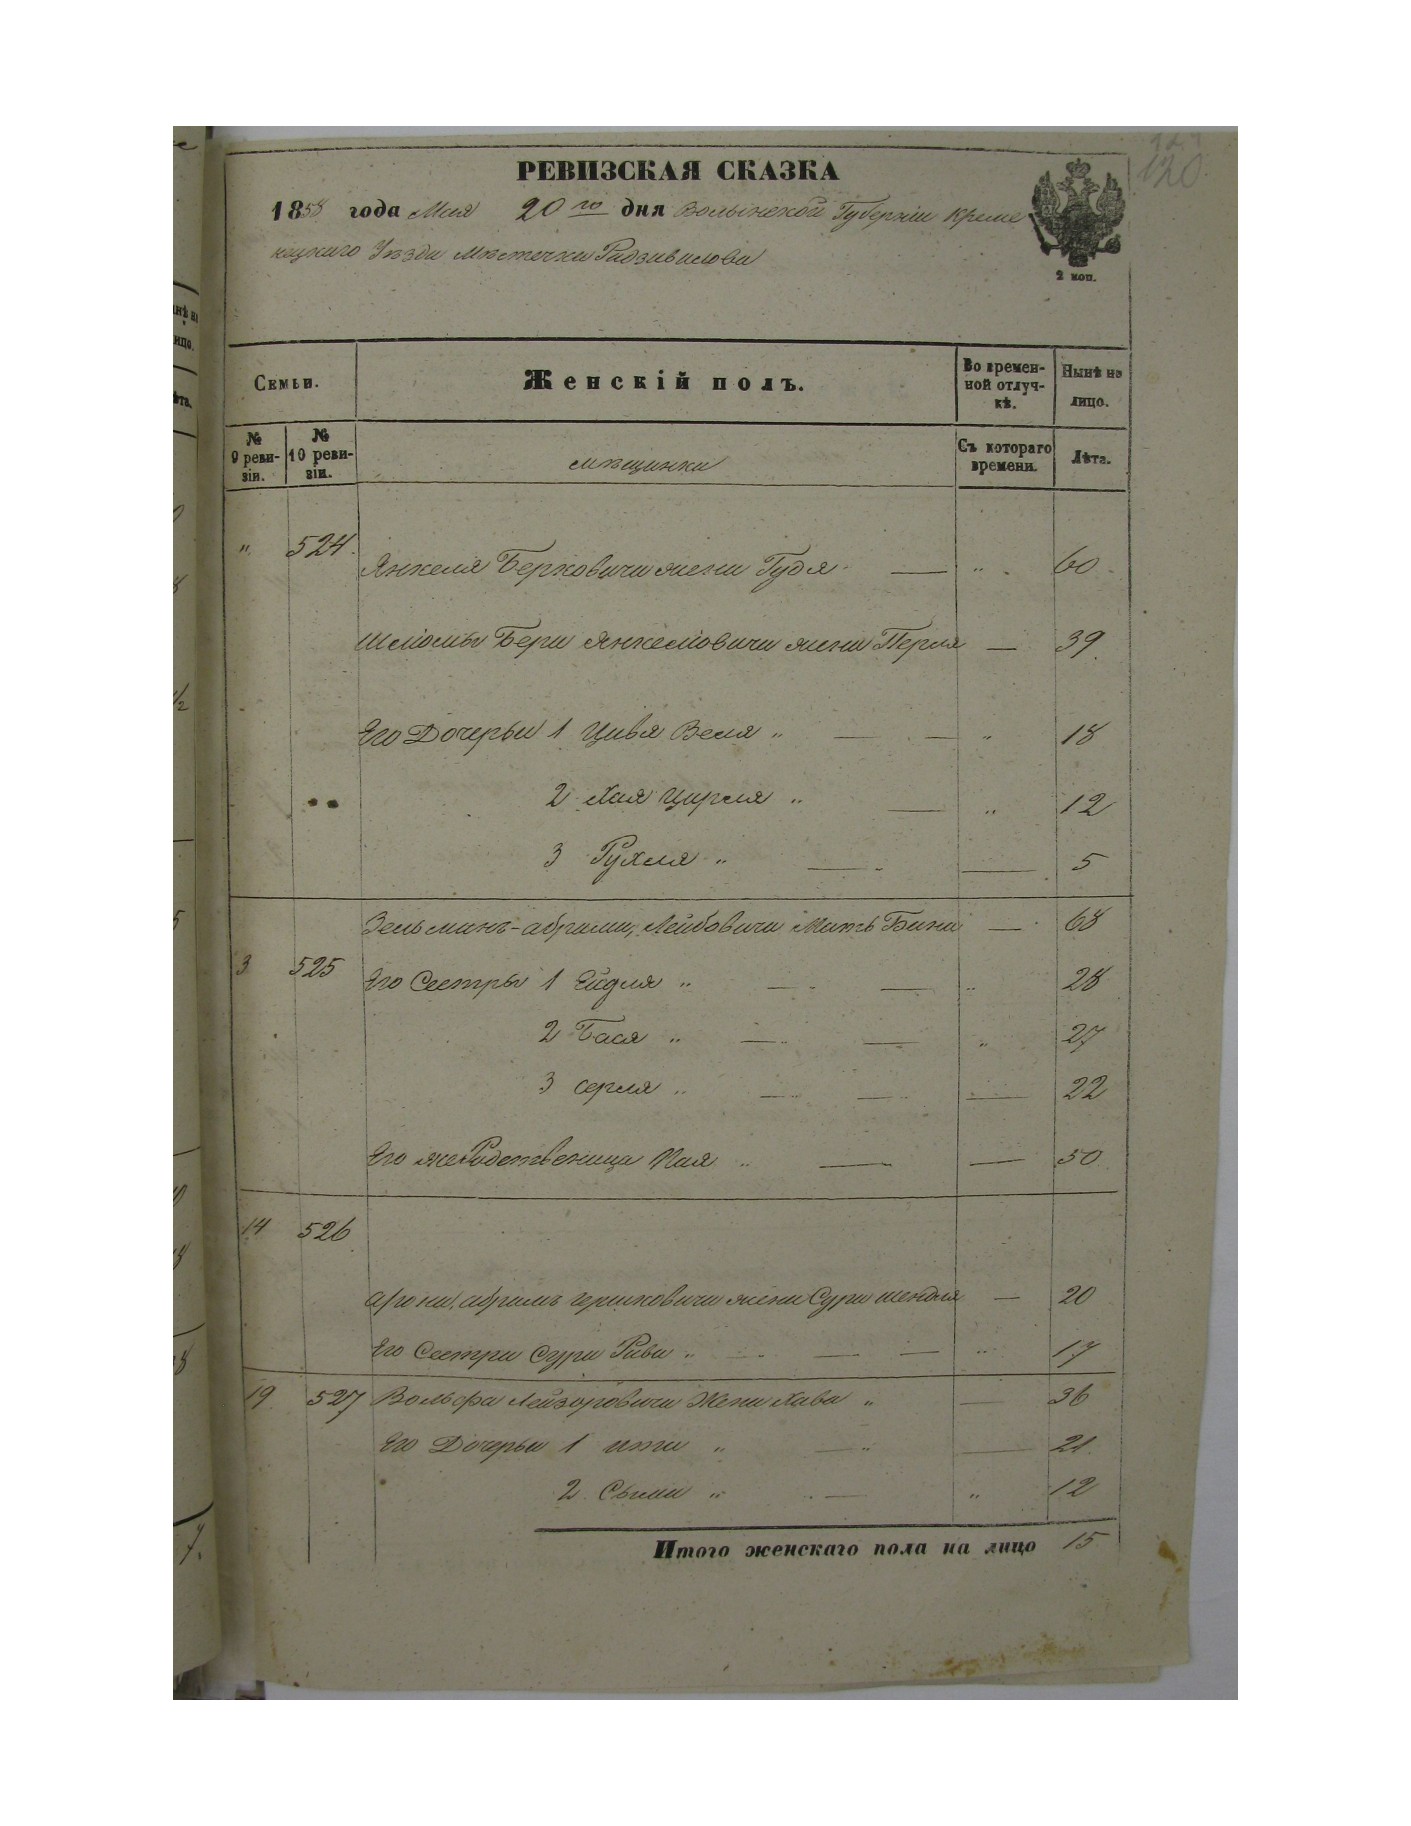 120
РЕВИЗСКАЯ СКАЗКА
1858 года Мая 20го дня Волынской Губерніи Креме
нецкаго Уѣзда Мѣстечка Радзивилова
2 коп.
Семьи.
Женскій полъ.
Во времен-
ной отлуч-
кѣ.
Нынѣ на
лицо.
№
9 реви-
зіи.
№
10 реви-
зіи.
мѣщинки
Съ котораго
времени.
Лѣта.
" 524. Янкеля Берковича жена Гудя — " . 60
Шліомы Бера Янкеліовича жена Перля — 39
Его Дочерьи 1 Цивя Веля " — — " 18
2 Хая Цирля " — " 12
3 Рухля " — — 5
Зельманъ-абрама, Лейбовича Мать Бина — 68
3 525 Его Сестры 1 Ейдля " — — " 28
2 Бася " — — " 27
3 серля " — — — 22
Его же Родственица Пая " — — 50
14 526
арона, абрамъ гершковича жена Сура шендля — 20
Его Сестра Сура Рива " — — — " 17
19 527 Вольфа Лейзоровича Жена Хава " — 36
Его Дочерьи 1 ита " — " — 21
2 Сыма " — " 12
Итого женскаго пола на лицо 15